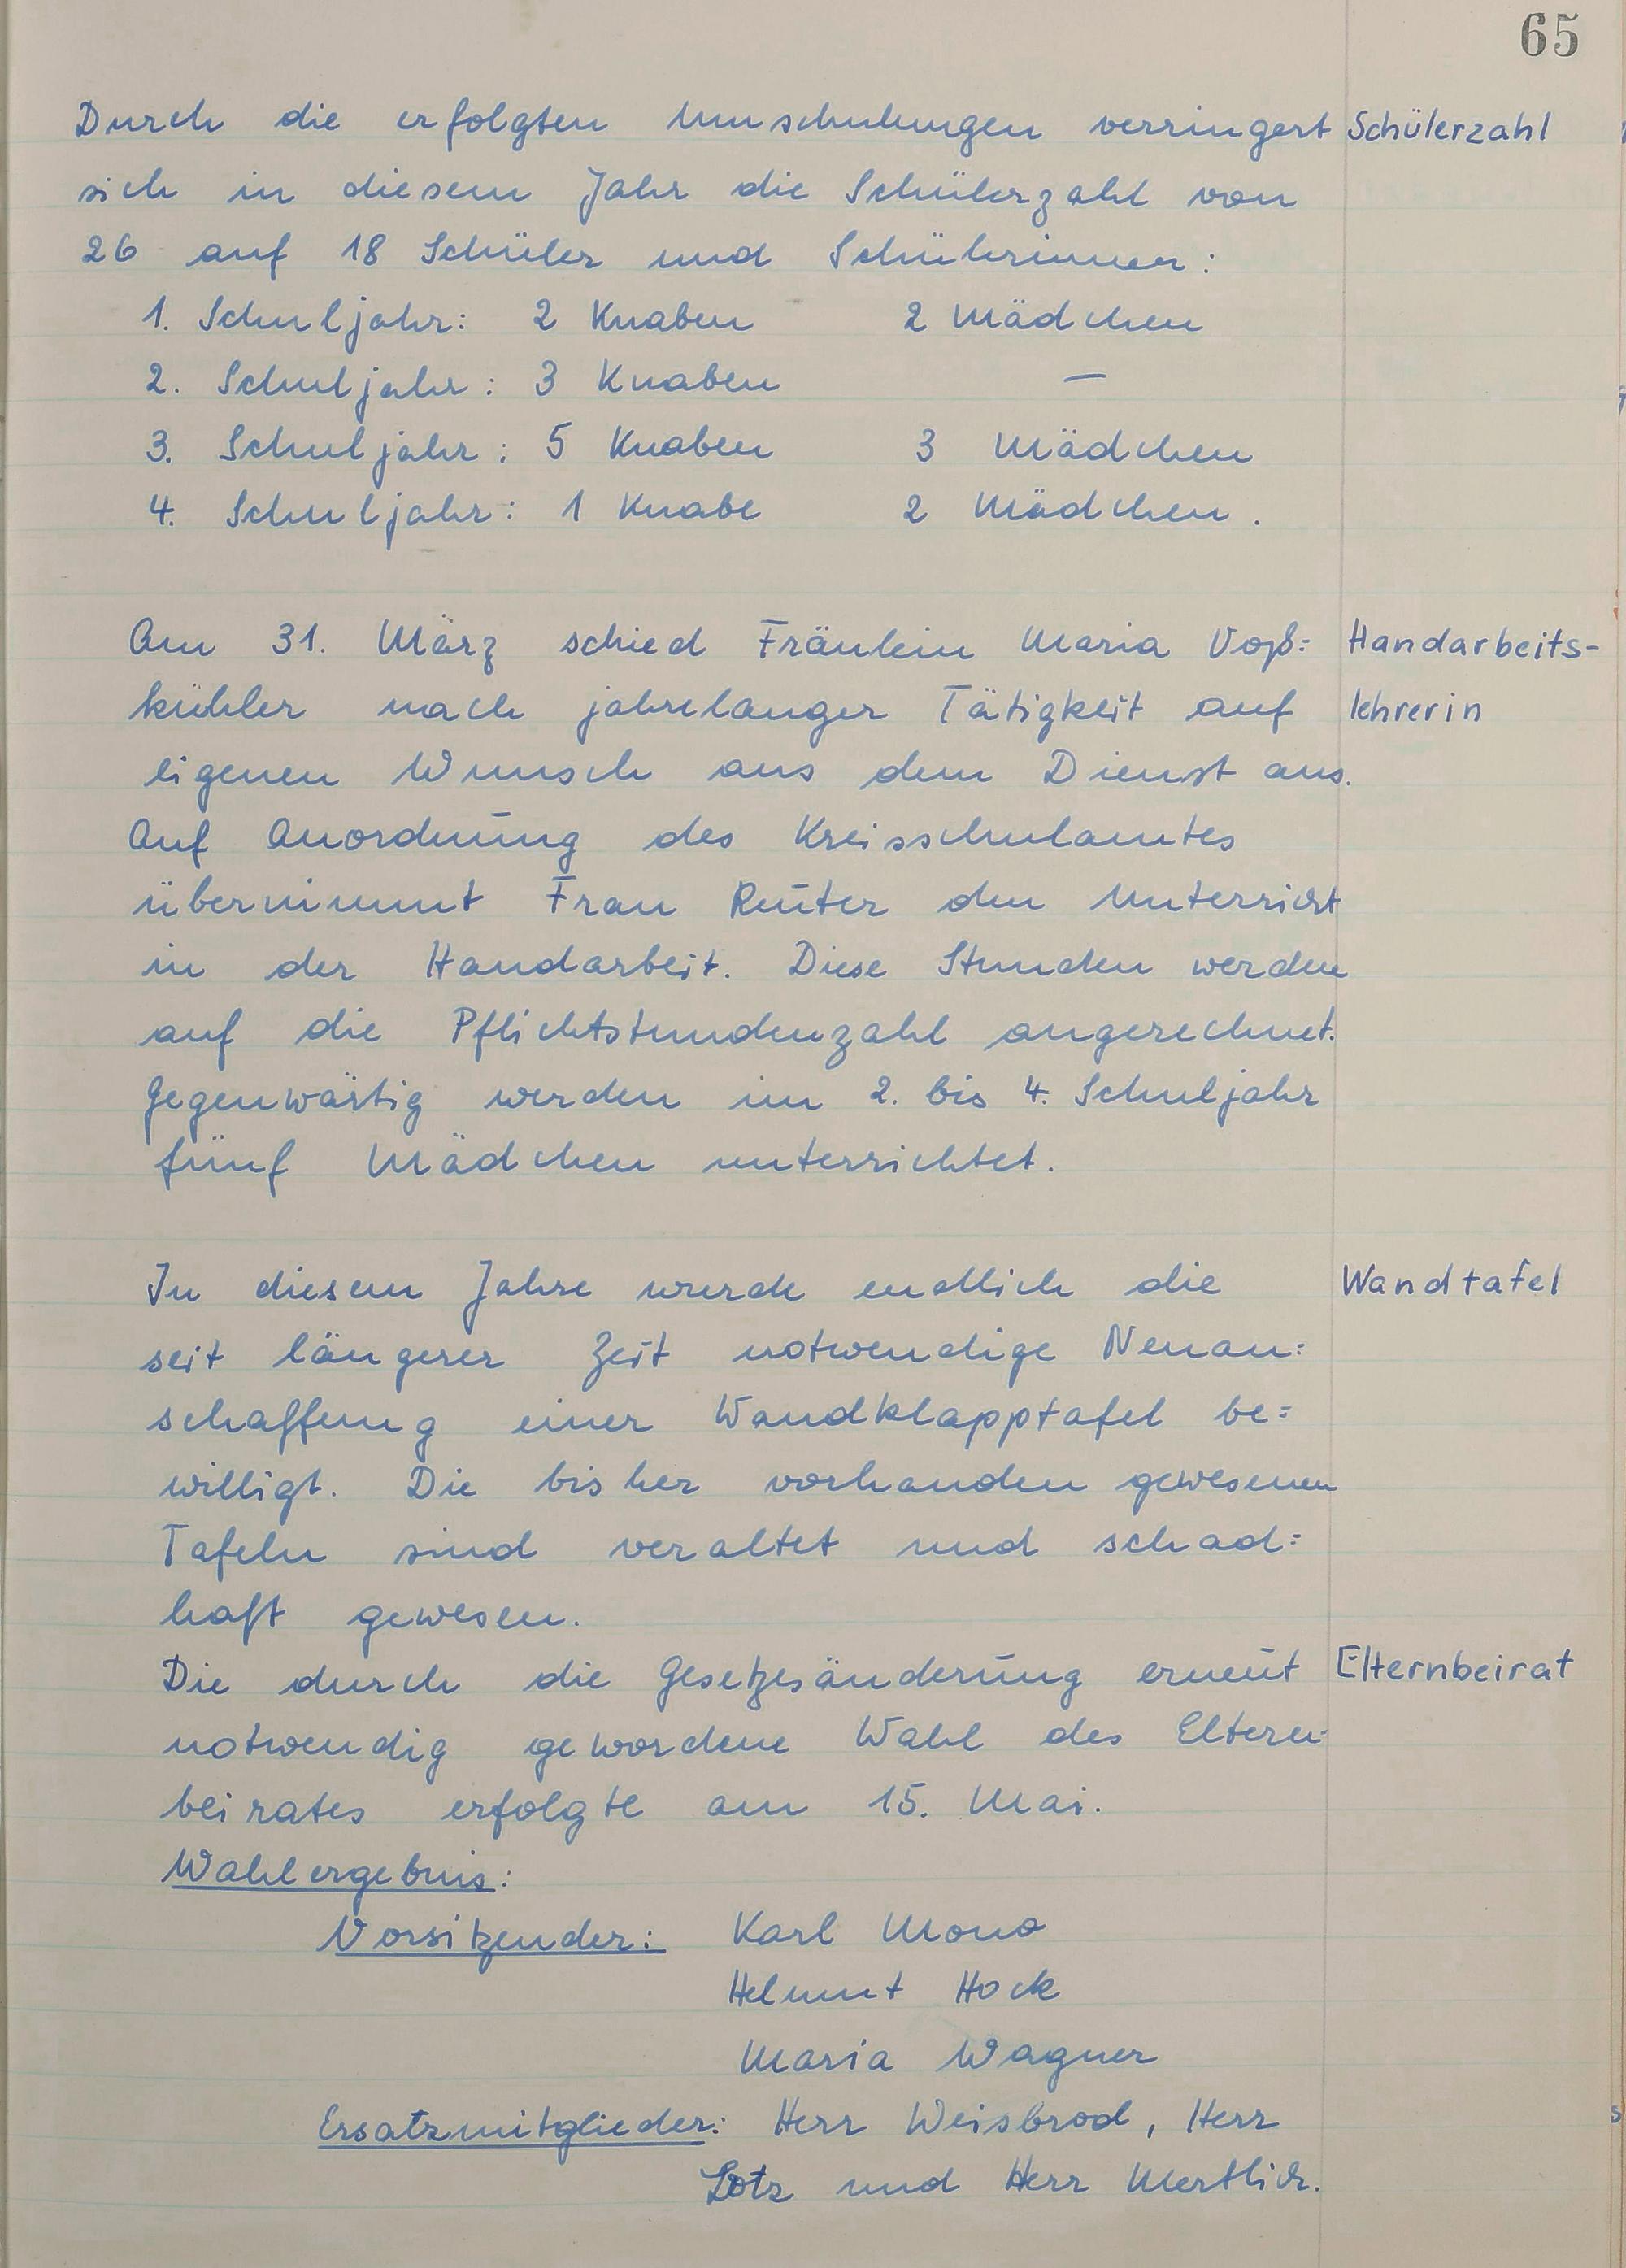 65
Durch die erfolgten Umschulungen verringert Schülerzahl
sich in diesem Jahr die Schülerzahl von
26 auf 18 Schüler und Schülerinnen:
1. Schuljahr: 2 Knaben 2 Mädchen
2. Schuljahr: 3 Knaben —
3. Schuljahr: 5 Knaben 3 Mädchen
4. Schuljahr: 1 Knabe 2 Mädchen.
Am 31. März schied Fräulein Maria Voß= Handarbeits-
kühler nach jahrelanger Tätigkeit auf lehrerin
eigenen Wunsch aus dem Dienst aus.
Auf Anordnung des Kreisschulamtes
übernimmt Frau Reuter den Unterricht
in der Handarbeit. Diese Stunden werden
auf die Pflichtstundenzahl angerechnet.
Gegenwärtig werden im 2. bis 4. Schuljahr
fünf Mädchen unterrichtet.
In diesem Jahre wurde endlich die Wandtafel
seit längerer Zeit notwendige Neuan=
schaffung einer Wandklapptafel be=
willigt. Die bisher vorhanden gewesenen
Tafeln sind veraltet und schad=
haft gewesen.
Die durch die Gesetzesänderung erneut Elternbeirat
notwendig gewordene Wahl des Eltern=
beirates erfolgte am 15. Mai.
Wahlergebnis:
Vorsitzender: Karl Mono
Helmut Hock
Maria Wagner
Ersatzmitglieder: Herr Weisbrod, Herr
Lotz und Herr Mertlich.